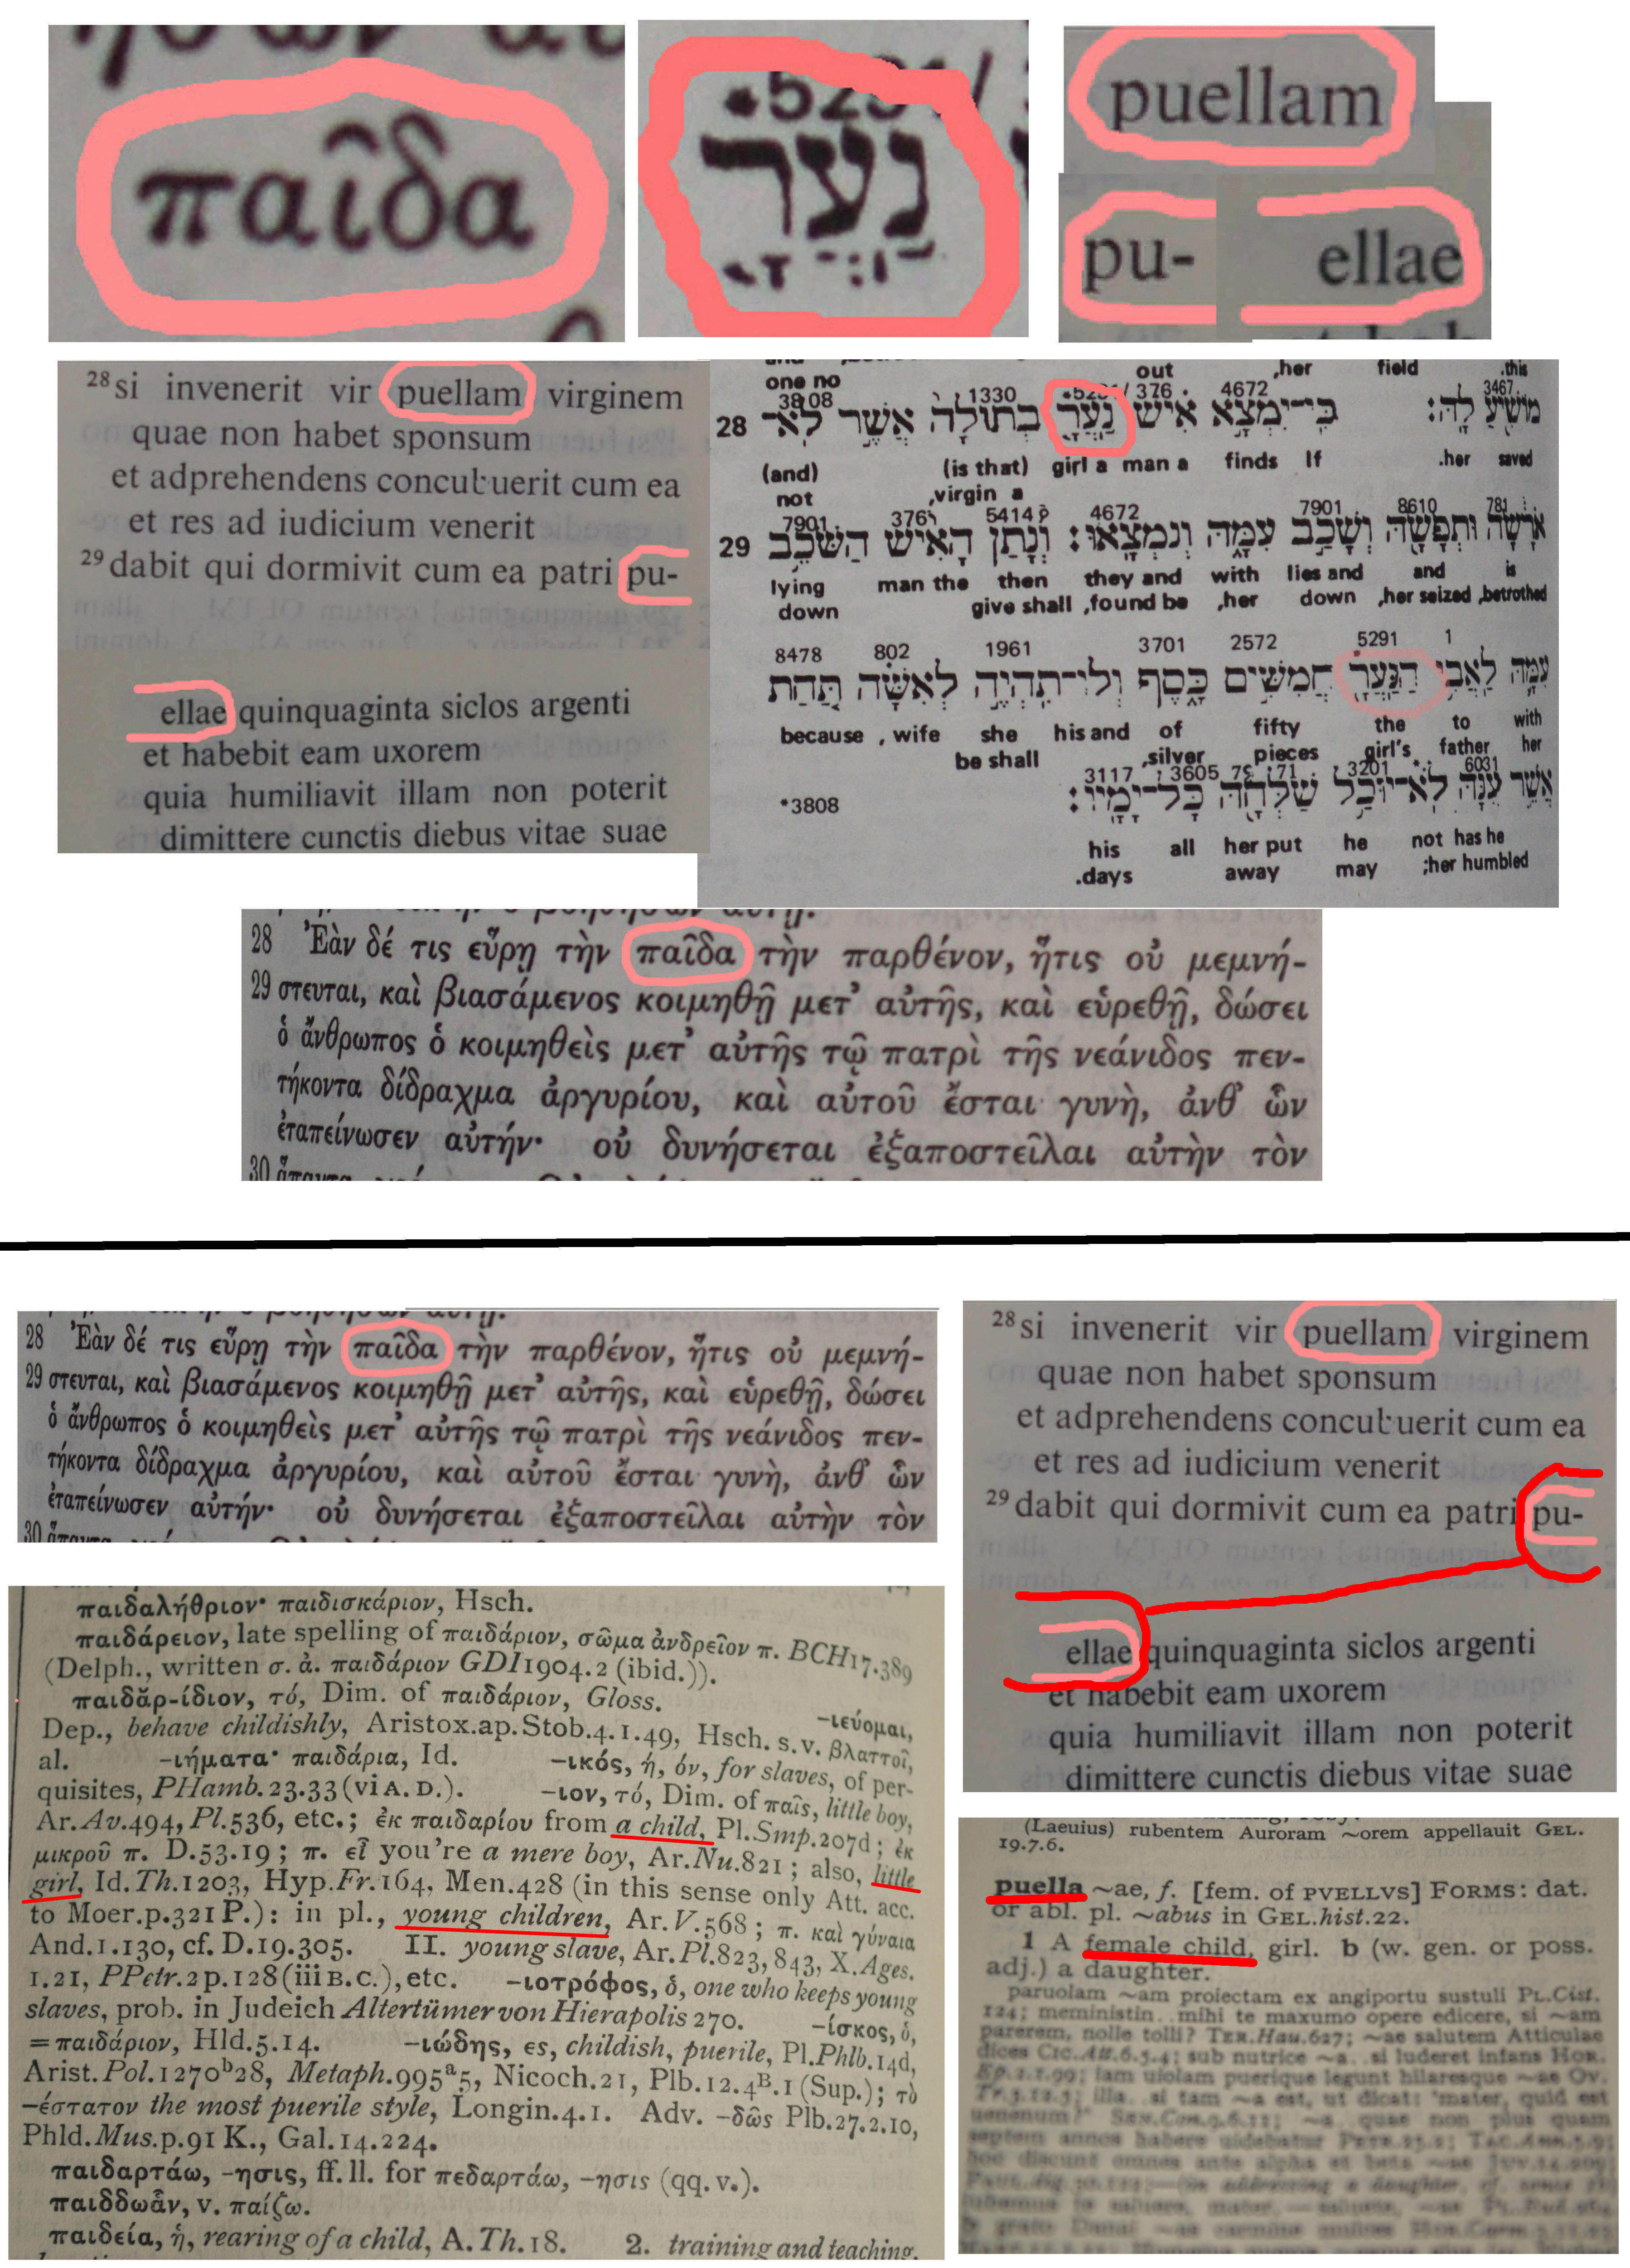 παῖδα
נַעֲרָ
puellam
pu-
ellae
28 si invenerit vir puellam virginem
quae non habet sponsum
et adprehendens concubuerit cum ea
et res ad iudicium venerit
29 dabit qui dormivit cum ea patri pu-
ellae quinquaginta siclos argenti
et habebit eam uxorem
quia humiliavit illam non poterit
dimittere cunctis diebus vitae suae
one no
out ,her field .this
3808 1330 5291/ 376 4672 3467
מוֹשִׁיעַ לָהּ׃
28 כִּי־יִמְצָא אִישׁ נַעֲרָ בְתוּלָה אֲשֶׁר לֹא־
(and) (is that) girl a man a finds If .her saved
not ,virgin a
7901 376 5414 4672 7901 8610 781
אֹרָשָׂה וּתְפָשָׂהּ וְשָׁכַב עִמָּהּ וְנִמְצָאוּ׃
29 וְנָתַן הָאִישׁ הַשֹּׁכֵב
lying man the then they and with lies and and is
down give shall ,found be ,her down ,her seized ,betrothed
8478 802 1961 3701 2572 5291 1
עִמָּהּ לַאֲבִי הַנַּעֲרָ חֲמִשִּׁים כָּסֶף וְלוֹ־תִהְיֶה לְאִשָּׁה תַּחַת
because , wife she his and of fifty the to with
be shall ,silver pieces girl's father her
3117 3605 7971 3201 6031
*3808
אֲשֶׁר עִנָּהּ לֹא־יוּכַל שַׁלְּחָהּ כָּל־יָמָיו׃
his all her put he not has he
.days away may ;her humbled
28 Ἐὰν δέ τις εὕρῃ τὴν παῖδα τὴν παρθένον, ἥτις οὐ μεμνή-
29 στευται, καὶ βιασάμενος κοιμηθῇ μετ᾽ αὐτῆς, καὶ εὑρεθῇ, δώσει
ὁ ἄνθρωπος ὁ κοιμηθεὶς μετ᾽ αὐτῆς τῷ πατρὶ τῆς νεάνιδος πεν-
τήκοντα δίδραχμα ἀργυρίου, καὶ αὐτοῦ ἔσται γυνὴ, ἀνθ᾽ ὧν
ἐταπείνωσεν αὐτήν· οὐ δυνήσεται ἐξαποστεῖλαι αὐτὴν τὸν
30
28 Ἐὰν δέ τις εὕρῃ τὴν παῖδα τὴν παρθένον, ἥτις οὐ μεμνή-
29 στευται, καὶ βιασάμενος κοιμηθῇ μετ᾽ αὐτῆς, καὶ εὑρεθῇ, δώσει
ὁ ἄνθρωπος ὁ κοιμηθεὶς μετ᾽ αὐτῆς τῷ πατρὶ τῆς νεάνιδος πεν-
τήκοντα δίδραχμα ἀργυρίου, καὶ αὐτοῦ ἔσται γυνὴ, ἀνθ᾽ ὧν
ἐταπείνωσεν αὐτήν· οὐ δυνήσεται ἐξαποστεῖλαι αὐτὴν τὸν
30
28 si invenerit vir puellam virginem
quae non habet sponsum
et adprehendens concubuerit cum ea
et res ad iudicium venerit
29 dabit qui dormivit cum ea patri pu-
ellae quinquaginta siclos argenti
et habebit eam uxorem
quia humiliavit illam non poterit
dimittere cunctis diebus vitae suae
παιδαλήθριον· παιδισκάριον, Hsch.
παιδάρειον, late spelling of παιδάριον, σῶμα ἀνδρεῖον π. BCH17.389
(Delph., written σ. ἀ. παιδάριον GDI1904.2 (ibid.)).
παιδᾰρ-ίδιον, τό, Dim. of παιδάριον, Gloss. -ιεύομαι,
Dep., behave childishly, Aristox.ap.Stob.4.1.49, Hsch. s.v. βλαττοῖ,
al. -ιήματα· παιδάρια, Id. -ικός, ή, όν, for slaves, of per-
quisites, PHamb.23.33 (vi A. D.). -ιον, τό, Dim. of παῖς, little boy,
Ar.Av.494, Pl.536, etc.; ἐκ παιδαρίου from a child, Pl.Smp.207d; ἐκ
μικροῦ π. D.53.19; π. εἶ you're a mere boy, Ar.Nu.821; also, little
girl, Id.Th.1203, Hyp.Fr.164, Men.428 (in this sense only Att. acc.
to Moer.p.321 P.): in pl., young children, Ar.V.568; π. καὶ γύναια
And.1.130, cf. D.19.305. II. young slave, Ar.Pl.823, 843, X.Ages.
1.21, PPetr.2p.128 (iii B.C.), etc. -ιοτρόφος, ὁ, one who keeps young
slaves, prob. in Judeich Altertümer von Hierapolis 270. -ίσκος, ὁ,
= παιδάριον, Hld.5.14. -ιώδης, ες, childish, puerile, Pl.Phlb.14d,
Arist.Pol.1270b28, Metaph.995a5, Nicoch.21, Plb.12.4B.1 (Sup.); τὸ
-έστατον the most puerile style, Longin.4.1. Adv. -δῶς Plb.27.2.10,
Phld.Mus.p.91 K., Gal.14.224.
παιδαρτάω, -ησις, ff. ll. for πεδαρτάω, -ησις (qq. v.).
παιδδωἇν, v. παίζω.
παιδεία, ἡ, rearing of a child, A.Th.18. 2. training and teaching,
(Laeuius) rubentem Auroram ~orem appellauit GEL.
19.7.6.
puella ~ae, f. [fem. of PVELLVS] FORMS: dat.
or abl. pl. ~abus in GEL.hist.22.
1 A female child, girl. b (w. gen. or poss.
adj.) a daughter.
paruolam ~am proiectam ex angiportu sustuli PL.Cist.
124; meministin..mihi te maxumo opere edicere, si ~am
parerem, nolle tolli? TER.Hau.627; ~ae salutem Atticulae
dices CIC.Att.6.5.4; sub nutrice ~a. si luderet infans HOR.